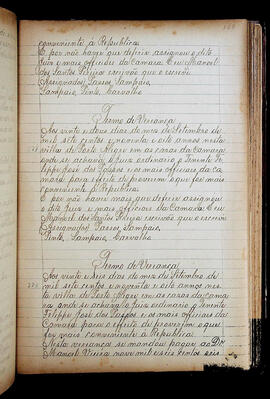 conveniente á Republica.
E por não haver que deferir assignou o dito
juiz e mais officiaes da Camara. Eu Manoel
dos Santos escrivão que o escrevi
Assignados, Passos, Sampaio,
Sampaio, Pinto, Carvalho
Termo de Vereança
Aos vinte e dous dias do mez de Setembro de
mil sete centos e noventa e oito annos nesta
villa de Porto Alegre em as casas da Camara
onde se achavão o juiz ordinario o Tenente
Felippe José dos Passos e os mais officiaes da Ca-
mara para effeito de proverem o que fôr mais
conveniente á Republica.
E por não haver mais que deferir assignou
o dito juiz e mais officiaes da Camara. Eu
Manoel dos Santos escrivão que o escrevi
Assignados, Passos, Sampaio,
Pinto, Sampaio, Carvalho
Termo de Vereança
Aos vinte e seis dias do mez de Setembro de
mil sete centos e noventa e oito annos nes-
ta villa de Porto Alegre em as casas da Cama-
ra onde se achavão o juiz ordinario o Tenente
Felippe José dos Passos e os mais officiaes da
Camara para o effeito de proverem o que
fôr mais conveniente á Republica.
Nesta vereança se mandou pagar ao Dr
Manoel Vieira nove mil e seis centos reis